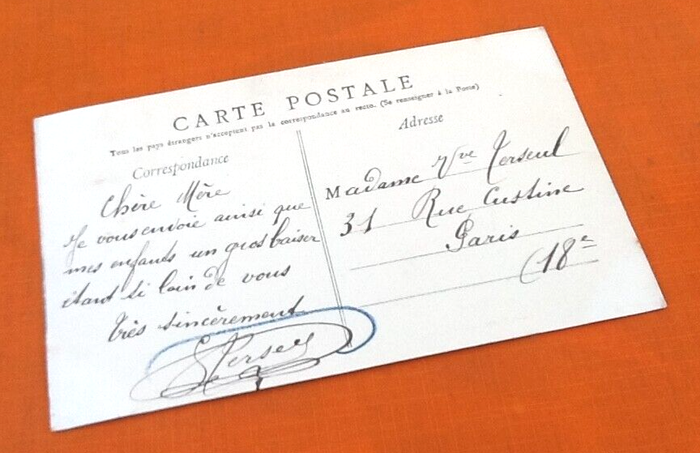 CARTE POSTALE
Tous les pays étrangers n'acceptent pas la correspondance au recto. (Se renseigner à la Poste)
Correspondance
Chère Mère
Je vous envoie ainsi que
mes enfants un gros baiser
étant si loin de vous
très sincèrement
Adresse
Madame Vve Terseul
31 Rue Custine
Paris
(18e